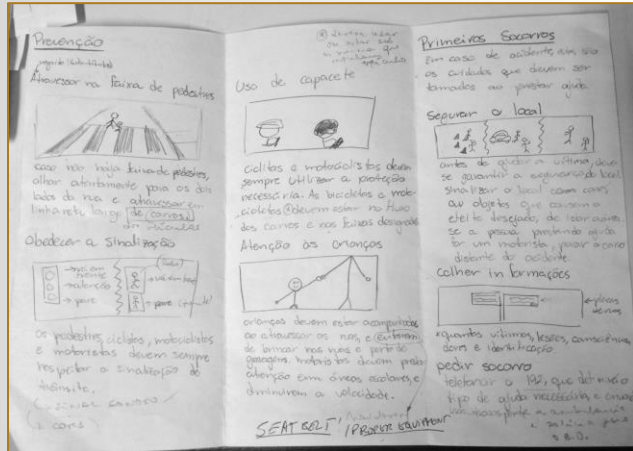 Prevenção
Atravessar na faixa de pedestres
caso não haja faixa de pedestres,
olhar atentamente para os dois
lados da rua e atravessar em
linha reta longe de carros
Obedecer a sinalização
→ siga em
frente
→ atenção
→ pare
Os pedestres, ciclistas, motociclistas
e motoristas devem sempre
respeitar a sinalização do
trânsito.
Uso de capacete
ciclistas e motociclistas devem
sempre utilizar a proteção
necessária. As bicicletas e moto-
cicletas devem estar no fluxo
dos carros e nas faixas designadas
Atenção às crianças
crianças devem estar acompanhadas
ao atravessar as ruas, e
de brincar nas ruas e perto de
garagens. motoristas devem prestar
atenção em áreas escolares, e
diminuírem a velocidade.
SEAT BELT / PROPER EQUIPMENT
Primeiros Socorros
em caso de acidente, estes são
os cuidados que devem ser
tomados ao prestar ajuda
Segurar o local
antes de ajudar a vítima, deve
se garantir a segurança do local
sinalizar o local com cones
ou objetos que causem o
efeito desejado, de
se a pessoa prestando ajuda
for um motorista, parar o carro
distante do acidente
Colher informações
← placas
de rua
quantas vítimas, lesões, consciência,
dores e identificação
pedir socorro
telefonar a 192, que definirá o
tipo de ajuda necessária e
a ambulância